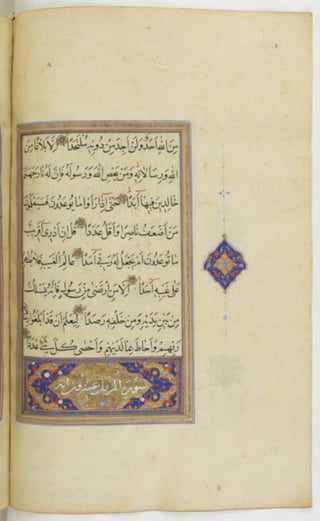 مِنَ اللهِ أَحَدٌ وَلَنْ أَجِدَ مِنْ دُونِهِ مُلْتَحَدًا إِلَّا بَلَاغًا مِنَ
اللهِ وَرِسَالَاتِهِ وَمَنْ يَعْصِ اللهَ وَرَسُولَهُ فَإِنَّ لَهُ نَارَ جَهَنَّمَ
خَالِدِينَ فِيهَا أَبَدًا حَتَّى إِذَا رَأَوْا مَا يُوعَدُونَ فَسَيَعْلَمُونَ
مَنْ أَضْعَفُ نَاصِرًا وَأَقَلُّ عَدَدًا قُلْ إِنْ أَدْرِي أَقَرِيبٌ
مَا تُوعَدُونَ أَمْ يَجْعَلُ لَهُ رَبِّي أَمَدًا عَالِمُ الْغَيْبِ فَلَا يُظْهِرُ
عَلَى غَيْبِهِ أَحَدًا إِلَّا مَنِ ارْتَضَى مِنْ رَسُولٍ فَإِنَّهُ يَسْلُكُ
مِنْ بَيْنِ يَدَيْهِ وَمِنْ خَلْفِهِ رَصَدًا لِيَعْلَمَ أَنْ قَدْ أَبْلَغُوا رِسَالَاتِ
رَبِّهِمْ وَأَحَاطَ بِمَا لَدَيْهِمْ وَأَحْصَى كُلَّ شَيْءٍ عَدَدًا
سورة المزمل عشرون آية